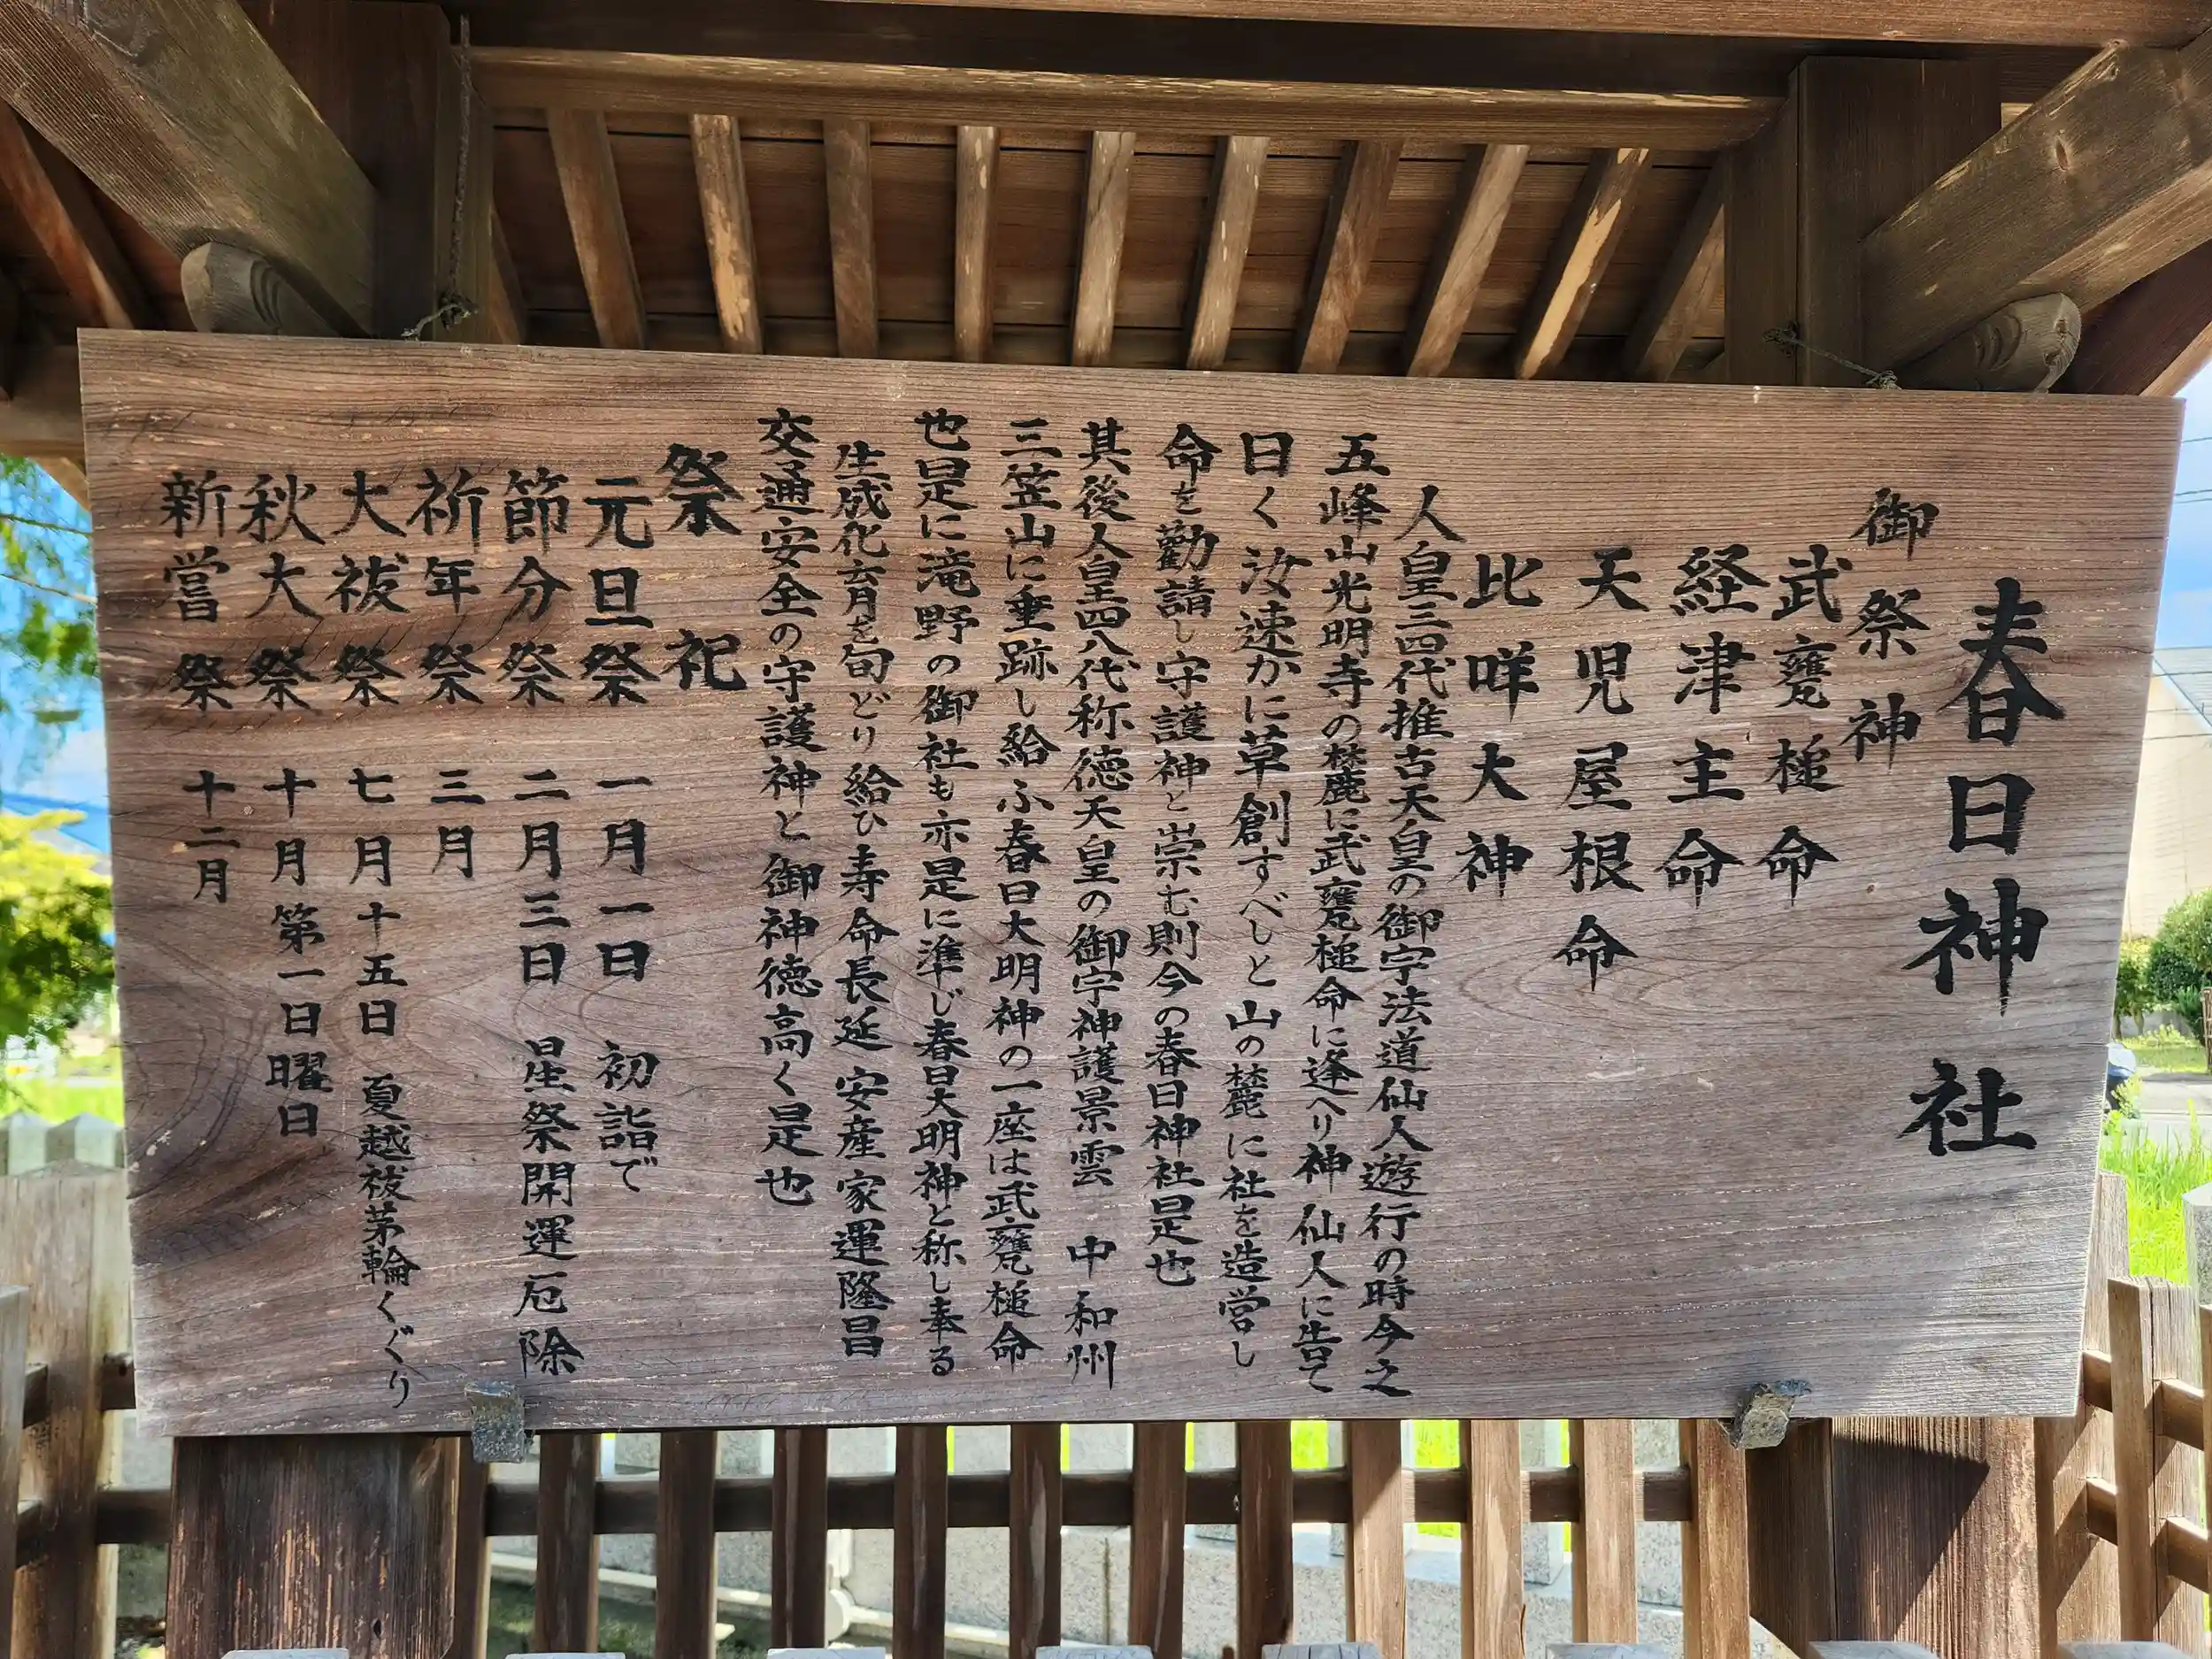 春日神社
御祭神
武甕槌命
経津主命
天児屋根命
比咩大神
人皇三四代推古天皇の御宇法道仙人遊行の時今之
五峰山光明寺の麓に武甕槌命に逢へり神仙人に告て
曰く汝速かに草創すべしと山の麓に社を造営し
命を勸請し守護神と崇む則今の春日神社是也
其後人皇四八代称徳天皇の御宇神護景雲 中和州
三笠山に垂跡し給ふ春日大明神の一座は武甕槌命
也是に滝野の御社も亦是に準じ春日大明神と称し奉る
生成化育を旬どり給ひ寿命長延 安産家運隆昌
交通安全の守護神と御神徳高く是也
祭祀
元旦祭 一月一日 初詣で
節分祭 二月三日 星祭開運厄除
祈年祭 三月
大祓祭 七月十五日 夏越祓茅輪くぐり
秋大祭 十月第一日曜日
新嘗祭 十二月